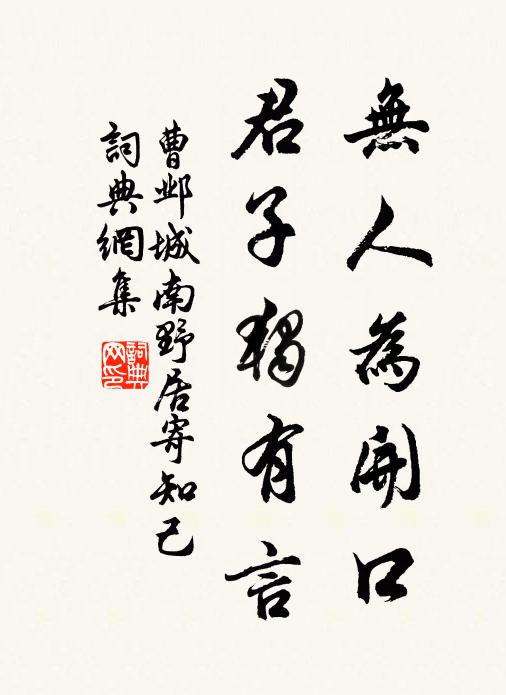 無人為開口
君子獨有言
曹邺城南野居寄知己
詞典網集
詞典
网印